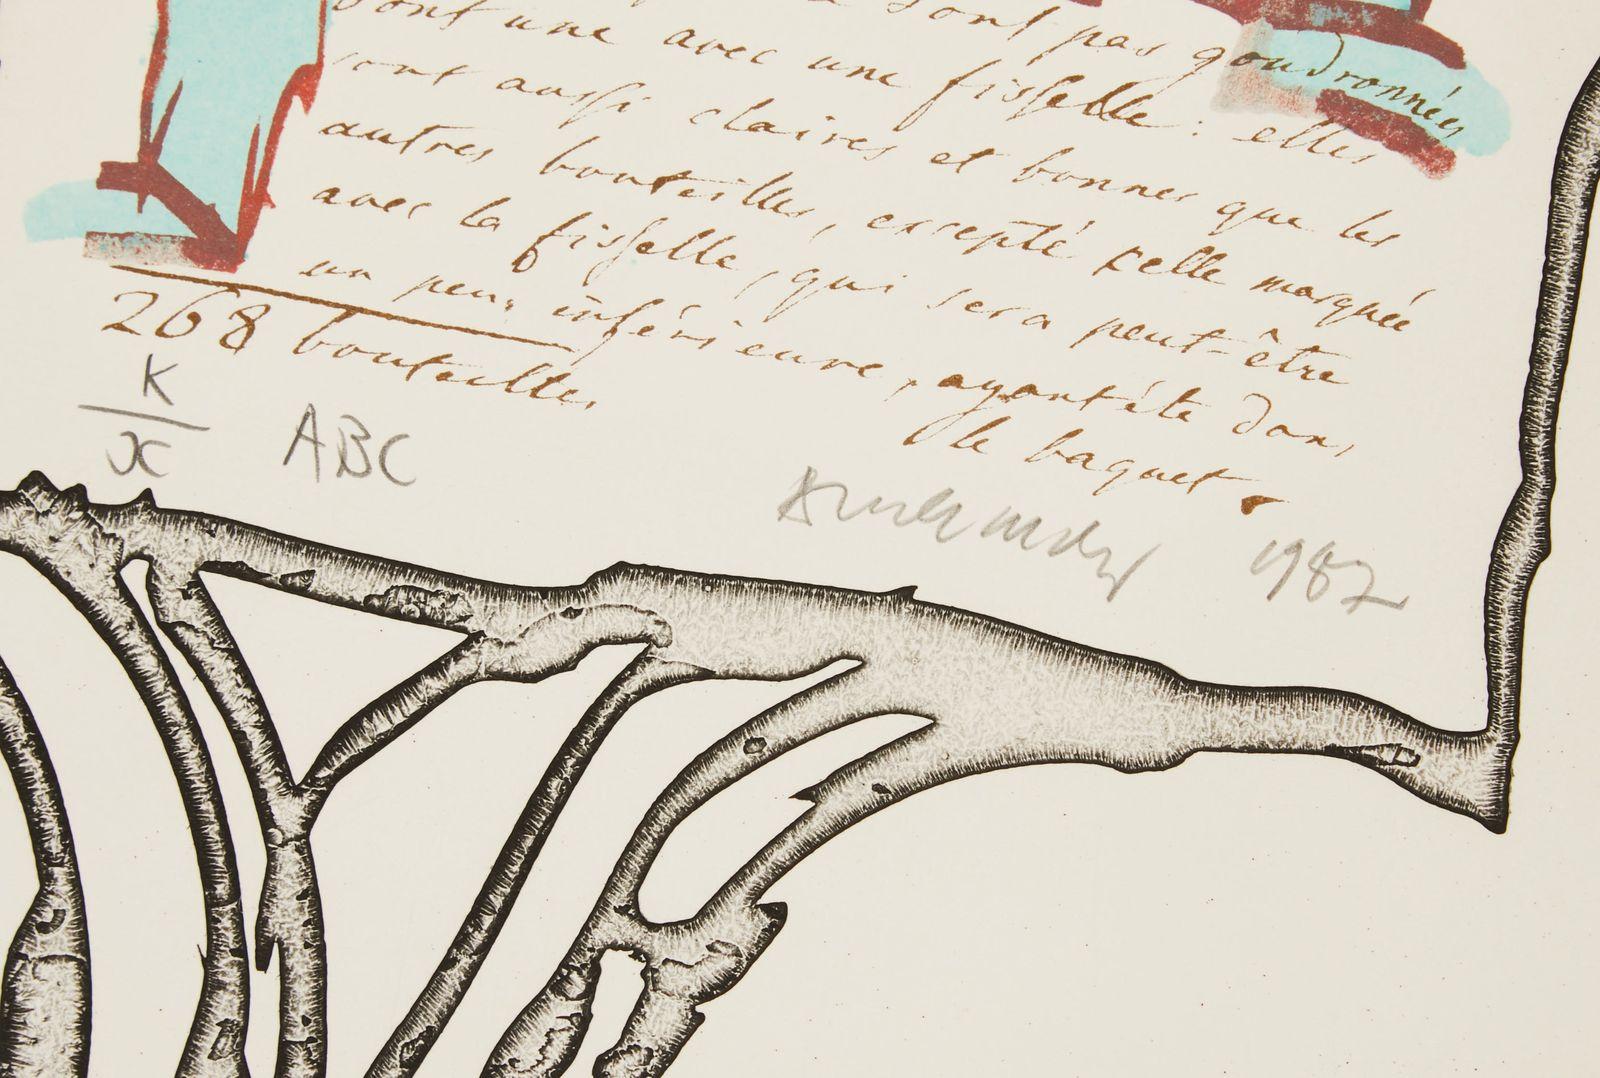 sont pas goudronnées
dont une avec une fisselle : elles
sont aussi claires et bonnes que les
autres bouteilles, excepté celle marquée
avec la fisselle, qui sera peut-être
un peu inférieure, ayant été dans
le baquet.
268 bouteilles
K
x
ABC
1987